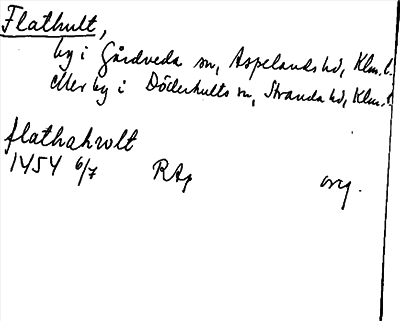 Flathult,
by i Gårdveda sn, Aspelands hd, Klm. l.
eller by i Döderhults sn, Stranda hd, Klm. l.
flathahwlt
1454 6/7 RAp org.